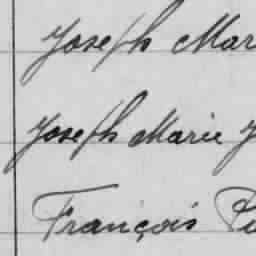 Joseph Mar
Joseph Marie J
François Pi